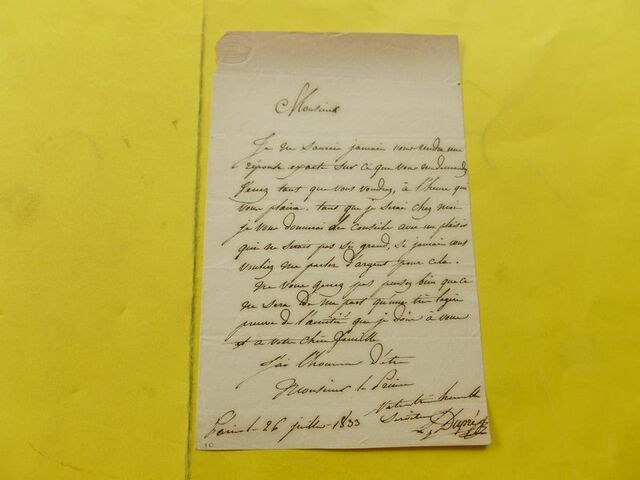 Monsieur
Je ne saurai jamais vous rendre une
réponse exacte sur ce que vous me demandez
Venez tant que vous voudrez, à l'heure qui
vous plaira. tant que je serai chez moi
je vous donnerai des conseils avec un plaisir
qui ne serait pas si grand, si jamais vous
vouliez me parler d'argent pour cela.
Ne vous genez pas pensez bien que ce
ne sera de ma part qu'une très legère
preuve de l'amitié que je dois à vous
et a votre chère famille
J'ai l'honneur d'être
Monsieur le
Votre très humble
Paris le 26 juillet 1833
Dupré